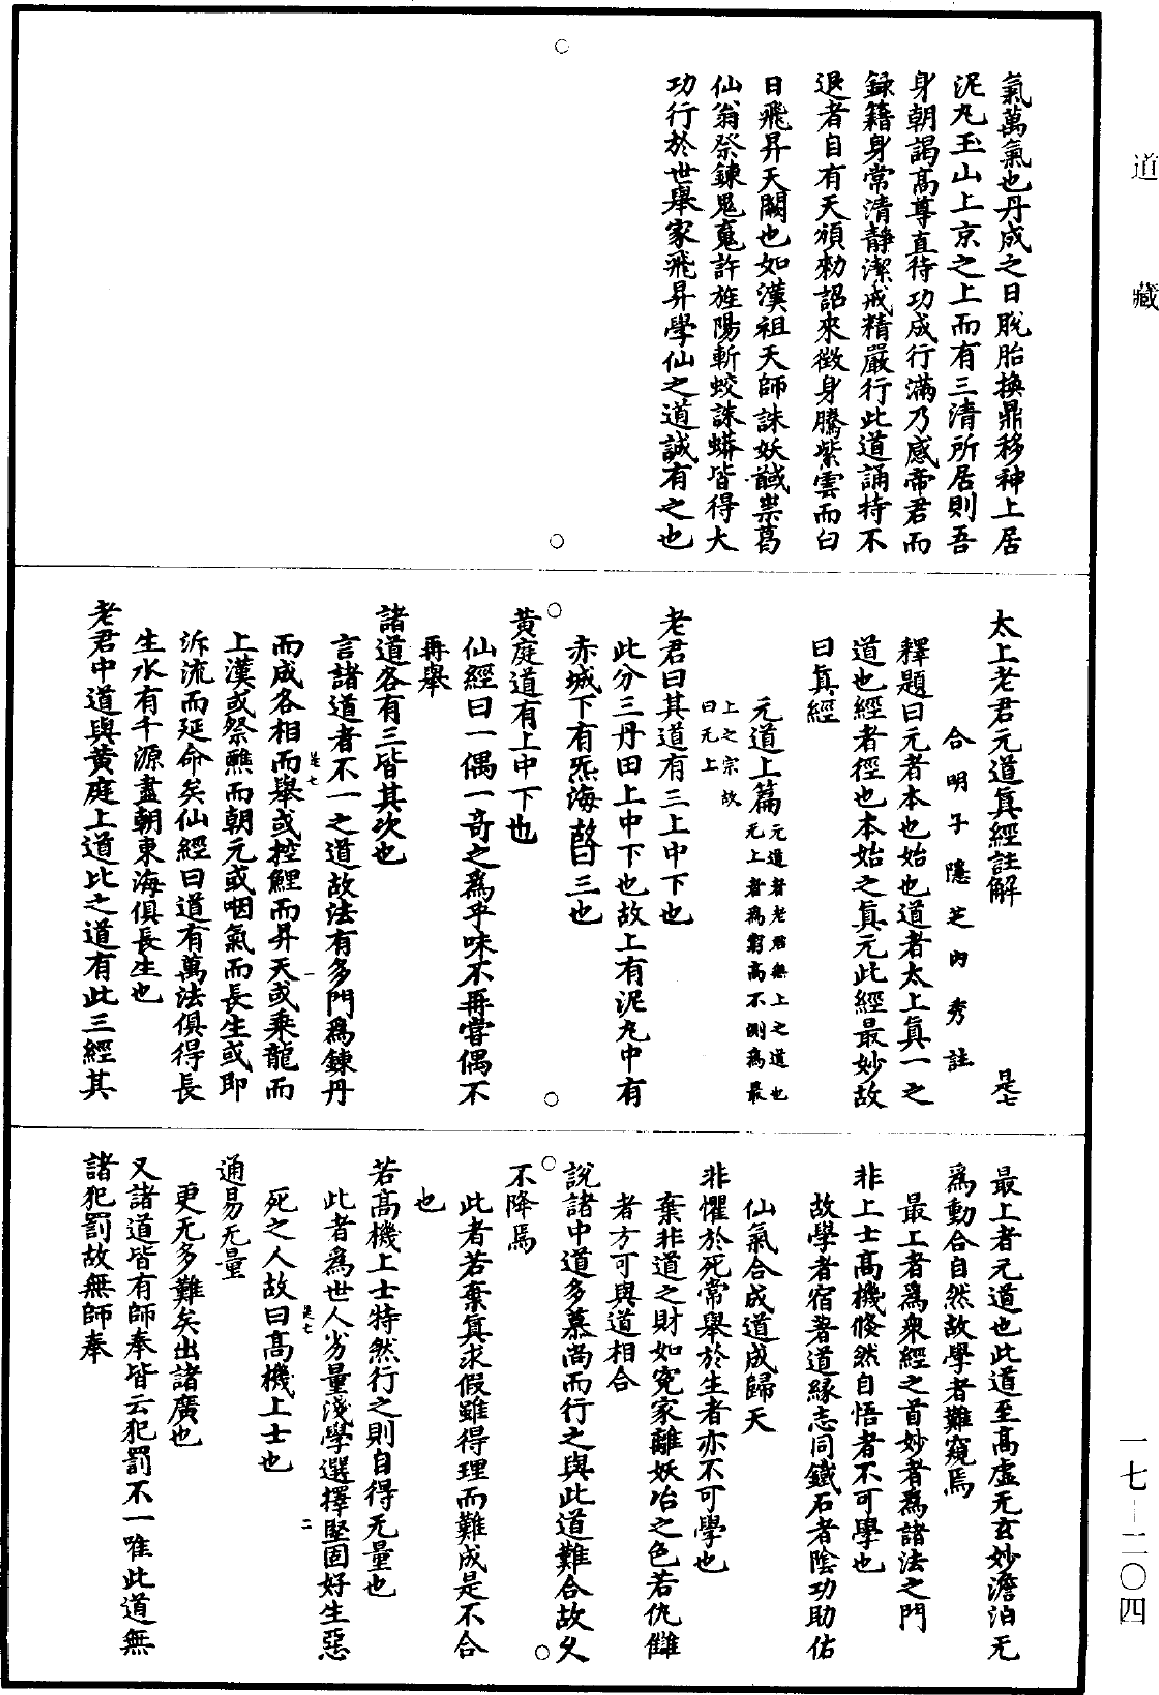 道藏
氣萬氣也丹成之日脫胎換鼎移神上居
泥丸玉山上京之上而有三清所居則吾
身朝謁高尊直待功成行滿乃感帝君而
録籍身常清靜潔戒精嚴行此道誦持不
退者自有天頒勑詔來徵身騰紫雲而白
日飛昇天闕也如漢祖天師誅妖馘祟葛
仙翁祭鍊鬼䰟許旌陽斬蛟誅蟒皆得大
功行於世舉家飛昇學仙之道誠有之也
太上老君元道眞經註解
是七
合明子隱芝內秀註
釋題曰元者本也始也道者太上眞一之
道也經者徑也本始之眞元此經最妙故
曰眞經
元道上篇元道者老君無上之道也
元上者為窮高不測為最
上之宗故
曰元上
老君曰其道有三上中下也
此分三丹田上中下也故上有泥丸中有
赤城下有炁海故曰三也
黃庭道有上中下也
仙經曰一偶一奇之為乎味不再嘗偶不
再舉
諸道各有三皆其次也
言諸道者不一之道故法有多門為鍊丹
是七
一
而成各相而舉或控鯉而昇天或乘龍而
上漢或祭醮而朝元或咽氣而長生或即
泝流而延命矣仙經曰道有萬法俱得長
生水有千源盡朝東海俱長生也
老君中道與黃庭上道比之道有此三經其
最上者元道也此道至高虛无玄妙澹泊无
為動合自然故學者難窺焉
最上者為衆經之首妙者為諸法之門
非上士高機倐然自悟者不可學也
故學者宿著道緣志同鐵石者陰功助佑
仙氣合成道成歸天
非懼於死常舉於生者亦不可學也
棄非道之財如寃家離妖冶之色若仇讎
者方可與道相合
說諸中道多慕尚而行之與此道難合故乆
不降焉
此者若棄眞求假雖得理而難成是不合
也
若高機上士特然行之則自得无量也
此者為世人劣量淺學選擇堅固好生惡
死之人故曰高機上士也
是七
二
通易无量
更无多難矣出諸廣也
又諸道皆有師奉皆云犯罰不一唯此道無
諸犯罰故無師奉
一七—二〇四